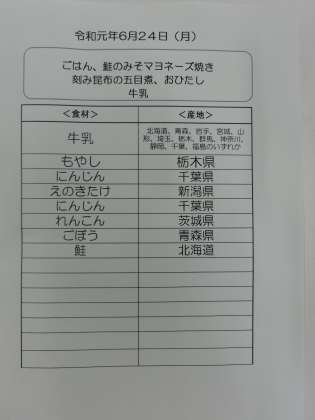 令和元年6月24日（月）
ごはん、鮭のみそマヨネーズ焼き
刻み昆布の五目煮、おひたし
牛乳
＜食材＞ ＜産地＞
牛乳 北海道、青森、岩手、宮城、山
形、埼玉、栃木、群馬、神奈川、
静岡、千葉、福島のいずれか
もやし 栃木県
にんじん 千葉県
えのきたけ 新潟県
にんじん 千葉県
れんこん 茨城県
ごぼう 青森県
鮭 北海道